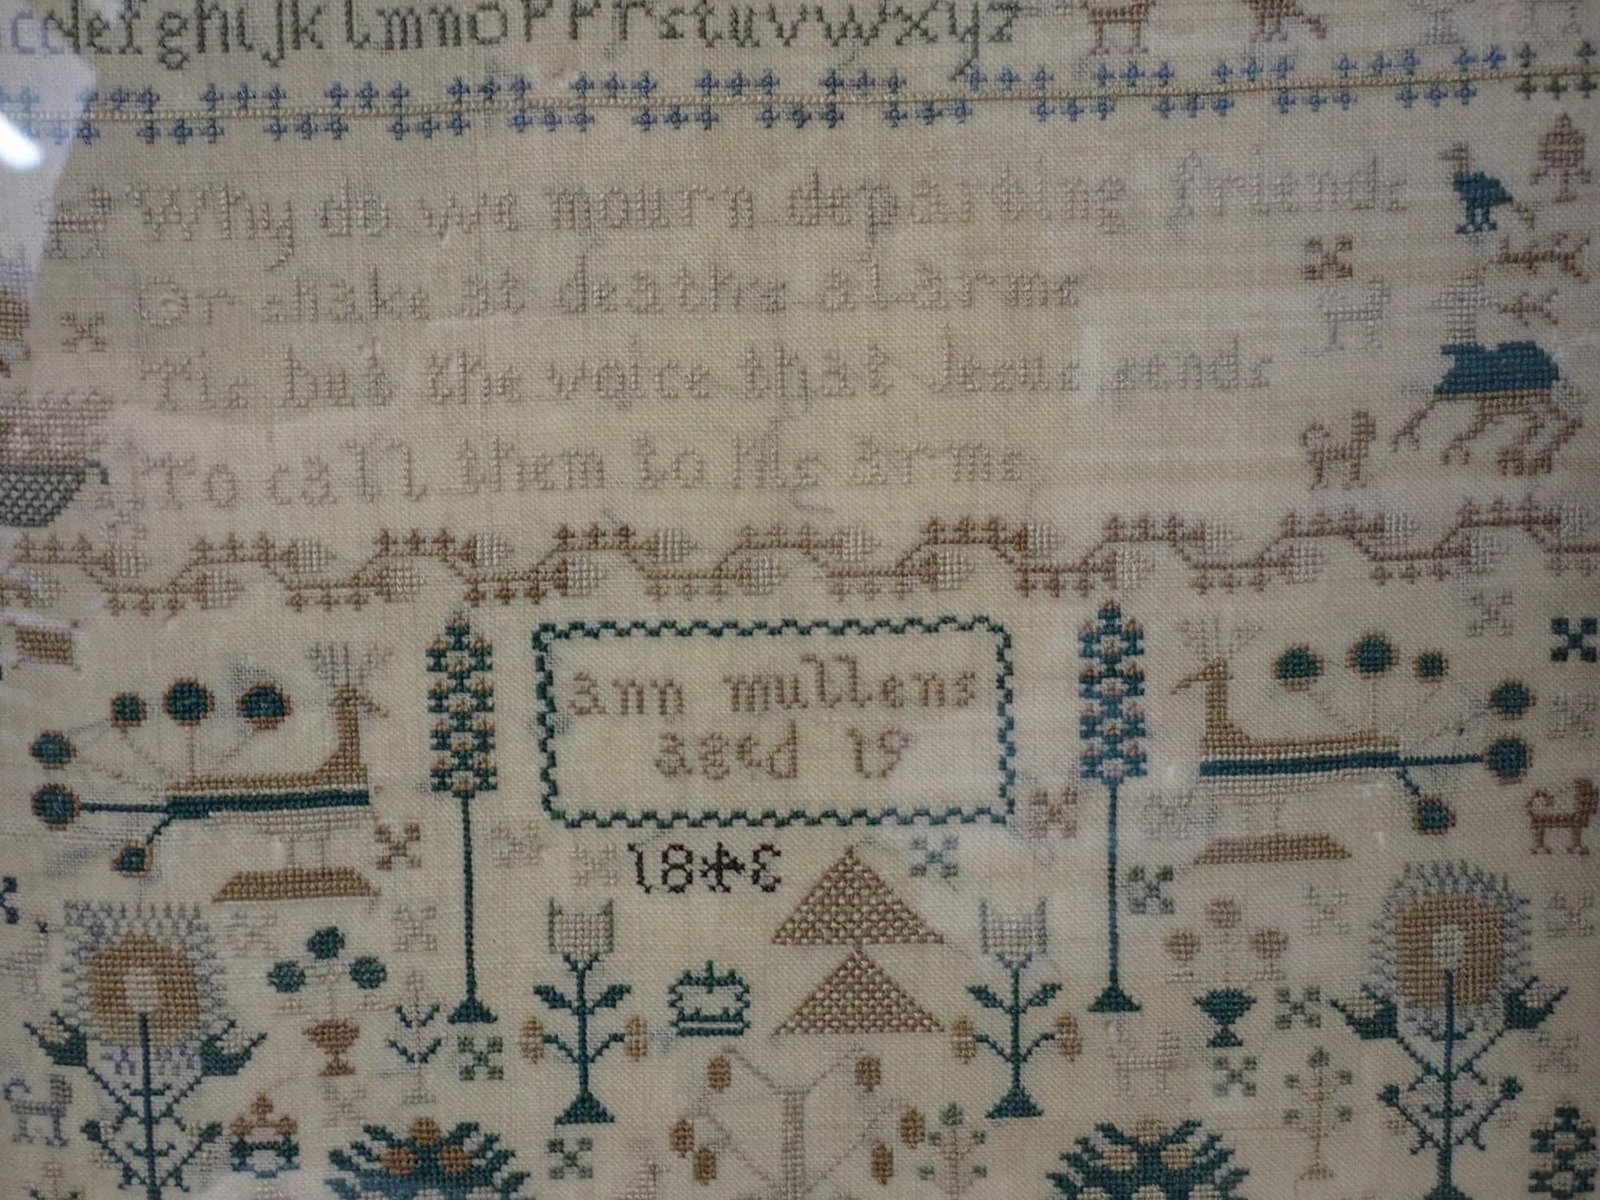 ccdefghijklmnoPPrstuvwxyz
Why do we mourn departing friends
Or shake at deaths alarms
Tis but the voice that Jesus sends
To call them to his arms
ann mullens
aged 19
1843